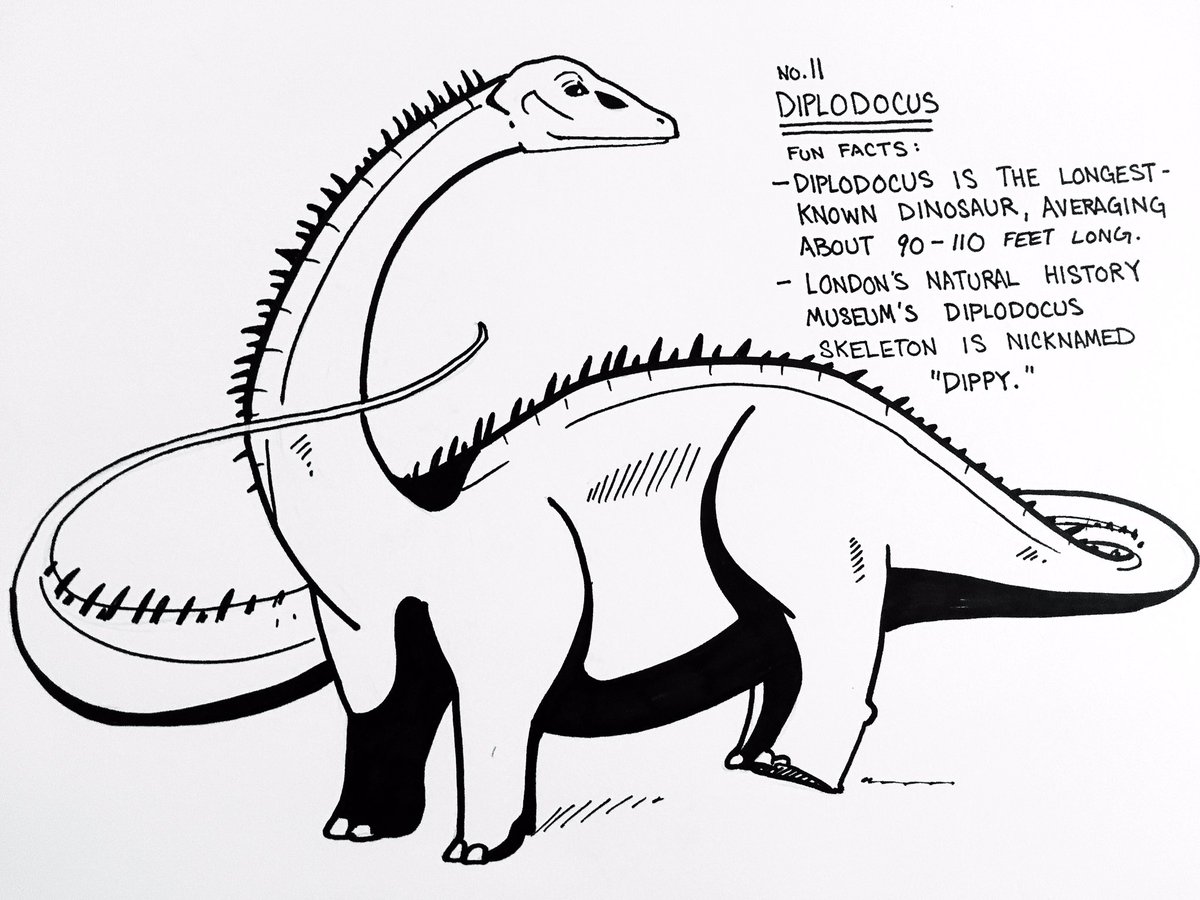 NO. 11
DIPLODOCUS
FUN FACTS:
- DIPLODOCUS IS THE LONGEST-
KNOWN DINOSAUR, AVERAGING
ABOUT 90-110 FEET LONG.
- LONDON'S NATURAL HISTORY
MUSEUM'S DIPLODOCUS
SKELETON IS NICKNAMED
"DIPPY."